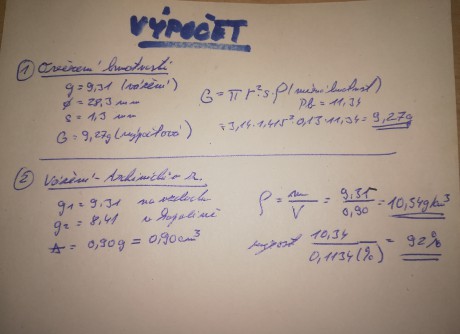 VÝPOČET
① Ověření hmotnosti
g = 9,31 (vážení)
ø = 28,3 mm
s = 1,3 mm
G = 9,27g (vypočtová)
G = π r² s · ρ (měrná hustota)
Pb = 11,34
= 3,14 · 1,415² · 0,13 · 11,34 = 9,27g
② Vážení - Archimédův z.
g1 = 9,31 na vzduchu
g2 = 8,41 v kapalině
Δ = 0,90g = 0,90cm³
ρ = m/V = 9,31/0,90 = 10,34g/cm³
10,34/0,1134 (%) = 92%